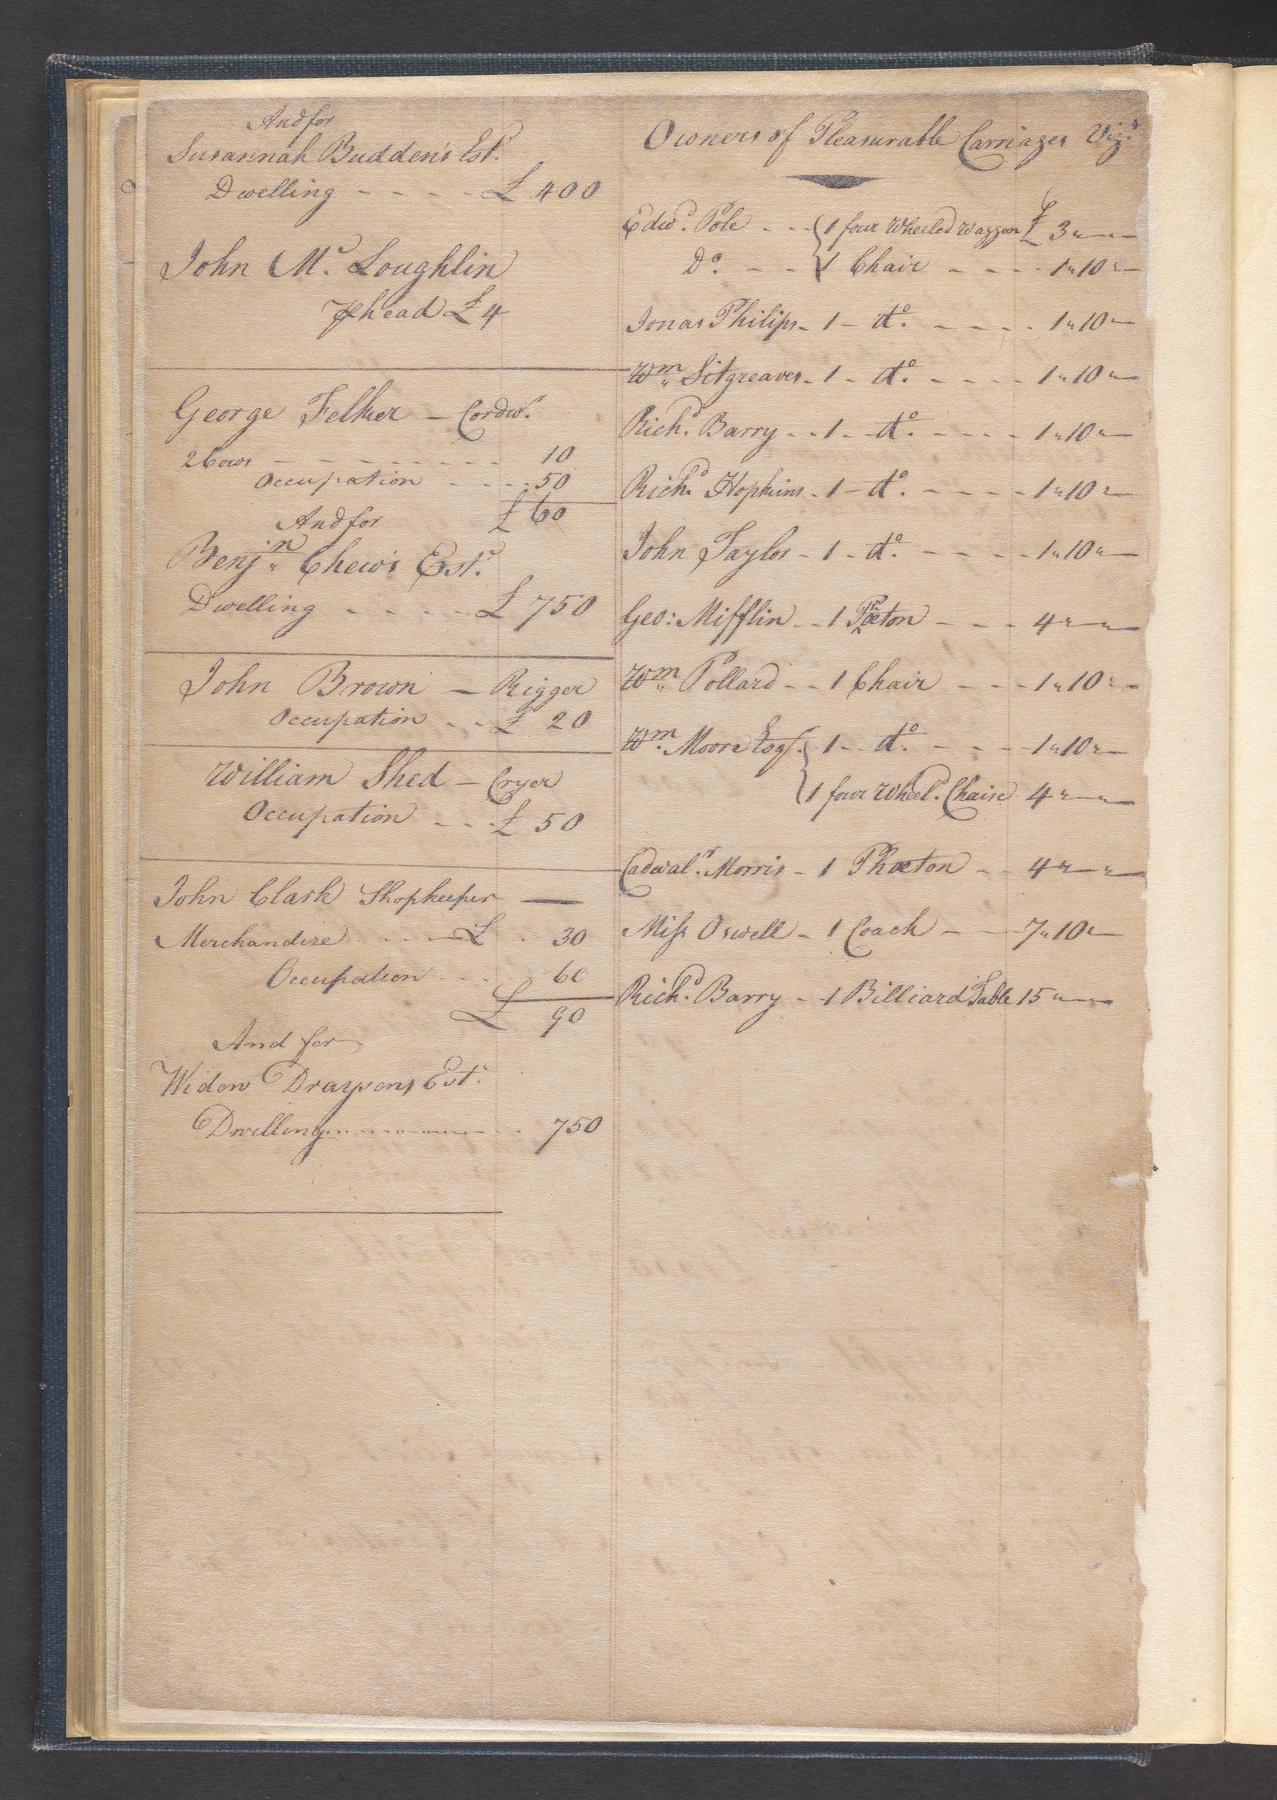 And for
Susannah Budden's Estª.
Dwelling - - - - £ 400
John Mc. Loughlin
⅌ head £ 4
George Felker - Cordwr.
2 Cows - - - - - - - - 10
Occupation - - - - 50
£ 60
And for
Benjn. Chew's Estª.
Dwelling - - - - £ 750
John Brown - Rigger
Occupation - - £ 20
William Shed - Cryer
Occupation - - - £ 50
John Clark Shopkeeper —
Merchandize - - - £ 30
Occupation - - - 60
£ 90
And for
Widow Draysons Estª.
Dwelling - - - - - - 750
Owners of Pleasurable Carriages Vizt.
£
Edwd. Pole - - - { 1 four Wheeled Waggon £ 3 " —
Do. - - - { 1 Chair - - - - 1 " 10 " —
Jonas Philips - 1 - do. - - - - 1 " 10 —
Wm. Sitgreaves - 1 - do. - - - - 1 " 10 " —
Richd. Barry - - 1 - - do. - - - - 1 " 10 " —
Richd. Hopkins - 1 - do. - - - - 1 " 10 " —
John Taylor - 1 - do. - - - - 1 " 10 " —
Geo: Mifflin - - 1 Phæton - - - 4 " — " —
Wm. Pollard - - 1 Chair - - - 1 " 10 " —
Wm. Moore Esqr. { 1 - - do. - - - 1 " 10 " —
{ 1 four Wheeld. Chaise 4 " — " —
Cadwalr. Morris - 1 Phæton - - 4 " — " —
Miss Oswell - 1 Coach - - - 7 " 10 " —
Richd. Barry - - 1 Billiard Table 15 " —